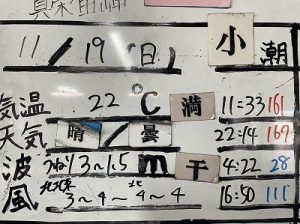 11/19(日) 小潮
気温 22℃ 満 11:33 161
天気 晴/曇 22:14 169
波 うねり3～1.5m 干 4:22 28
風 北北東 北
3～4～4～4 16:50 111